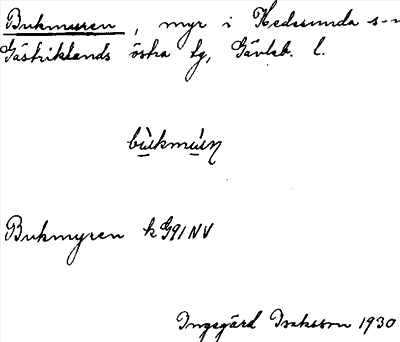 Bukmuren, myr i Hedesunda s-n
Gästriklands östra tg, Gävleb. l.
bu̲kmu̲ṛṇ
Bukmyren k G91NV
Ingegärd Isaksson 1930